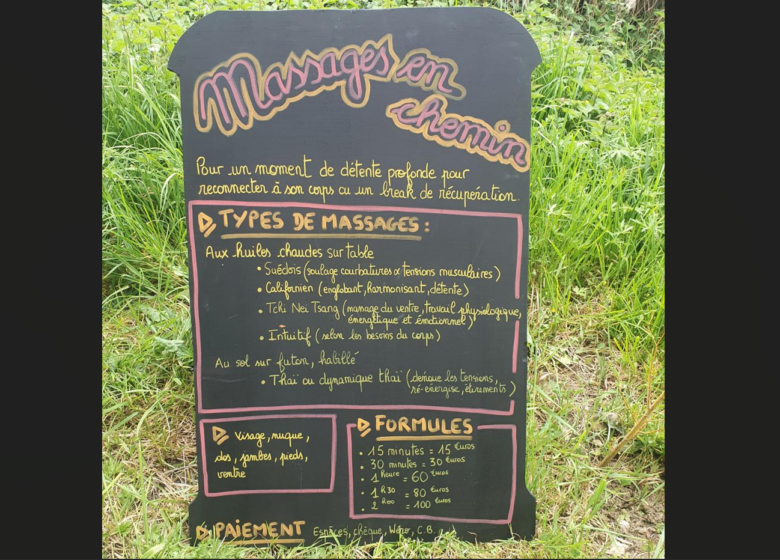 Massages en
chemin
Pour un moment de détente profonde pour
reconnecter à son corps ou un break de récupération.
TYPES DE MASSAGES :
Aux huiles chaudes sur table
• Suédois (soulage courbatures & tensions musculaires)
• Californien (englobant, harmonisant, détente)
• Tchi Nei Tsang (massage du ventre, travail physiologique,
énergétique et émotionnel)
• Intuitif (selon les besoins du corps)
Au sol sur futon, habillé
• Thaï ou dynamique thaï (dénoue les tensions,
ré-énergise, étirements)
Visage, nuque,
dos, jambes, pieds,
ventre
FORMULES
• 15 minutes = 15 euros
• 30 minutes = 30 euros
• 1 heure = 60 euros
• 1 h30 = 80 euros
• 2 h00 = 100 euros
PAIEMENT Espèces, chèque, Wero, C.B.